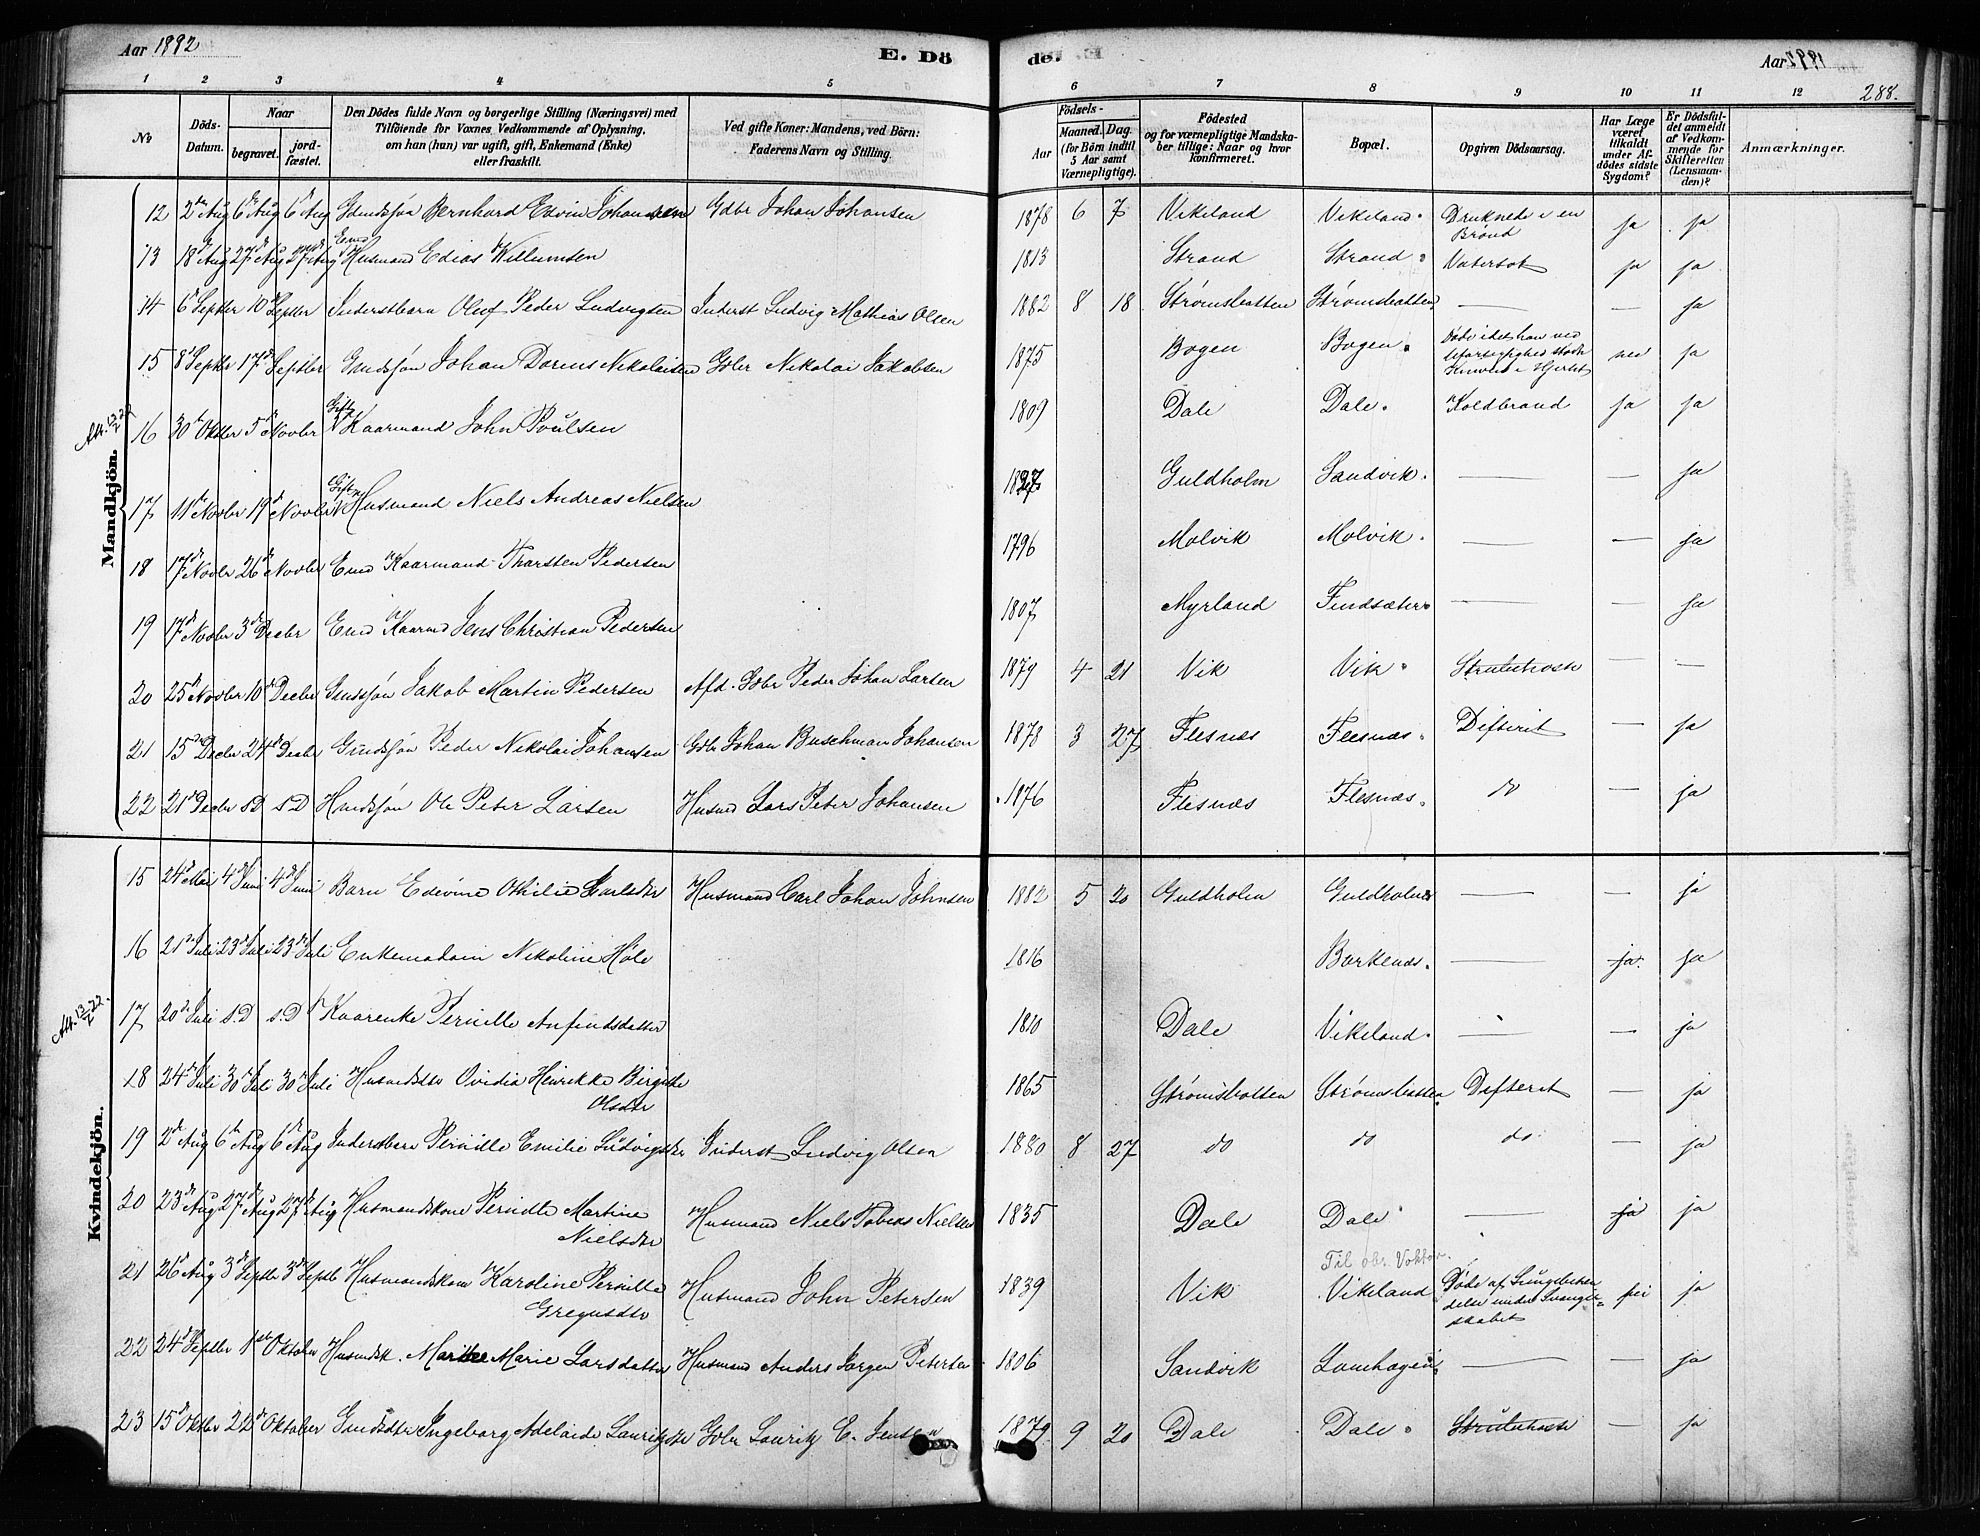 Aar 1892
E. Dö
de.
Aar 1892
288.
1 2 3 4 5 6 7 8 9 10 11 12
No
Döds-Datum.
Naar
begravet.
jord-fæstet.
Den Dödes fulde Navn og borgerlige Stilling (Næringsvei) med
Tilföiende for Voxnes Vedkommende af Oplysning,
om han (hun) var ugift, gift, Enkemand (Enke)
eller fraskilt.
Ved gifte Koner: Mandens, ved Börn:
Faderens Navn og Stilling.
Födsels-
Aar
Maaned. Dag.
(for Börn indtil
5 Aar samt
Værnepligtige).
Födested
og for værnepligtige Mandska-
ber tillige: Naar og hvor
konfirmeret.
Bopæl.
Opgiven Dödsaarsag.
Har Læge
været
tilkaldt
under Af-
dödes sidste
Sygdom?
Er Dödsfal-
det anmeldt
af Vedkom-
mende for
Skifteretten
(Lensman-
den)?
Anmærkninger.
Mandkjön.
12 2den Aug 6te Aug 6te Aug Gmdssøn Bernhard Edvin Johansen Gdbr Johan Johansen 1878 6 7 Vikeland Vikeland Druknede i en Brønd ja ja
13 18de Aug 27de Aug 27de Aug Enkmd Husmand Edias Willumsen 1813 Strand Strand Vatersot ja ja
14 6te Septbr 10de Septbr Inderstbarn Oluf Peder Ludvigsen Inderst Ludvig Mathias Olsen 1882 8 18 Strømsbotten Strømsbotten — — ja
15 8de Septbr 17de Septbr Gmdssøn Johan Dorius Nikolaisen Gdbr Nikolai Jakobsen 1875 Bogen Bogen Døde idet han ved uforsigtighed stødte Kniven i Hjertet nei ja
Att. 13/2 22
16 30te Oktbr 5te Novbr Gift Kaarmand John Poulsen 1809 Dale Dale Koldbrand ja ja
17 11te Novbr 19de Novbr Gift Husmand Niels Andreas Nielsen 1827 Guldholm Sandvik — — ja
18 17de Novbr 26de Novbr Enkmd Kaarmand Thorsten Pedersen 1796 Molvik Molvik — — ja
19 17de Novbr 3de Decbr Enkmd Kaarmd Jens Christian Pedersen 1807 Myrland Findsæter — — ja
20 25de Novbr 10de Decbr Gmdssøn Jakob Martin Pedersen Afd. Gdbr Peder Johan Larsen 1879 4 21 Vik Vik Strubehoste — —
21 15de Decbr 24de Decbr Gmdssøn Peder Nikolai Johansen Gdbr Johan Buschman Johansen 1878 3 27 Flesnæs Flesnæs Difterit — ja
22 21de Decbr s.D s.D Hmdssøn Ole Peter Larsen Husmd Lars Peter Johansen 1876 Flesnæs Flesnæs do — ja
Kvindekjön.
15 24de Mai 4de Juni 4de Juni Barn Edevine Othilie Karlsdtr Husmand Carl Johan Johnsen 1882 5 20 Guldholm Guldholm — — ja
16 21de Juli 23de Juli 23de Juli Enkemadam Nikoline Hole 1816 Barkenæs — ja ja
Att. 13/2 22.
17 20de Juli s.D s.D Kaarenke Pernille Anfindsdatter 1810 Dale Vikeland — — ja
18 24de Juli 30de Juli 30de Juli Husmdsdtr Ovidia Henrikke Birgitte Olsdtr 1865 Strømsbotten Strømsbotten Difterit — ja
19 2den Aug 6te Aug 6te Aug Inderstbarn Pernille Emilie Ludvigsdtr Inderst Ludvig Olsen 1880 8 27 do do do — ja
20 23de Aug 27de Aug 27de Aug Husmandskone Pernille Martine Nielsdtr Husmand Niels Tobias Nielsen 1835 Dale Dale — ja ja
Til obs. Voktor.
21 26de Aug 3de Septbr 3de Septbr Husmandskone Karoline Pernille Gregusdtr Husmand John Petersen 1839 Vik Vikeland Døde af Lungebetændelse under Svangerskabet nei ja
22 24de Septbr 1ste Oktober Husmdsk. Marie Larsdatter Husmand Anders Jørgen Petersen 1806 Sandvik — — ja
23 15de Oktbr 22de Oktober Gmdsdtr Ingeborg Adelaide Lauritzdtr Gdbr Lauritz E. Jensen 1879 9 20 Dale Dale Strubehoste — ja